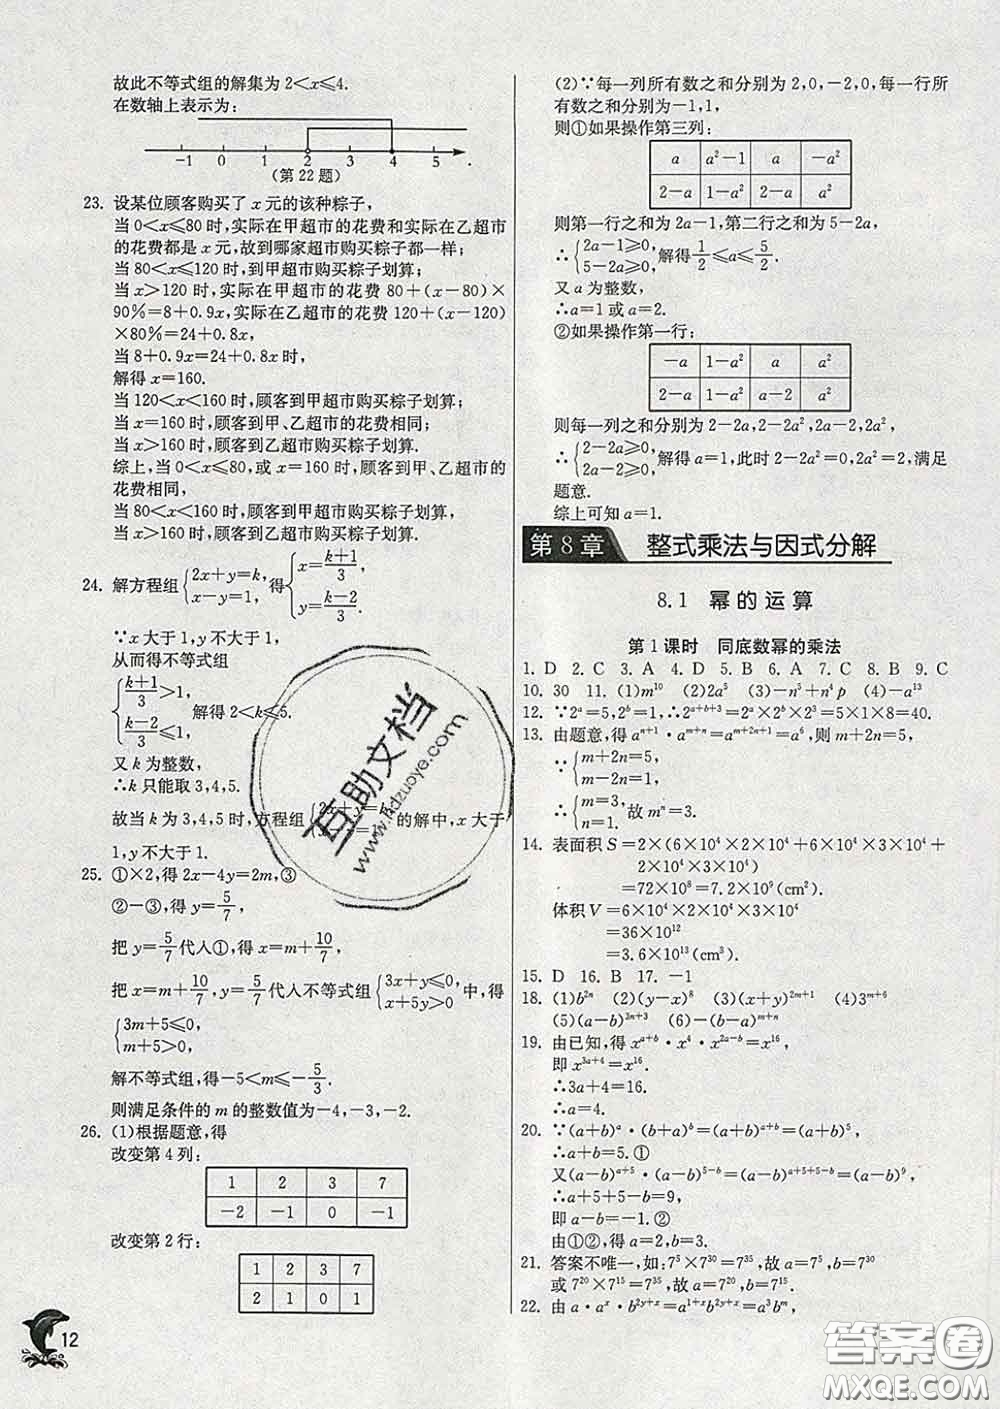 故此不等式组的解集为 2<x≤4.
在数轴上表示为:
-1 0 1 2 3 4 5
(第 22 题)
23. 设某位顾客购买了 x 元的该种粽子,
当 0<x≤80 时,实际在甲超市的花费和实际在乙超市
的花费都是 x 元,故到哪家超市购买粽子都一样;
当 80<x≤120 时,到甲超市购买粽子划算;
当 x>120 时,实际在甲超市的花费 80+(x-80)×
90%=8+0.9x,实际在乙超市的花费 120+(x-120)
×80%=24+0.8x,
当 8+0.9x=24+0.8x 时,
解得 x=160.
当 120<x<160 时,顾客到甲超市购买粽子划算;
当 x=160 时,顾客到甲、乙超市的花费相同;
当 x>160 时,顾客到乙超市购买粽子划算.
综上,当 0<x≤80,或 x=160 时,顾客到甲、乙超市的
花费相同,
当 80<x<160 时,顾客到甲超市购买粽子划算;
当 x>160 时,顾客到乙超市购买粽子划算.
24. 解方程组{2x+y=k, x-y=1, 得{x=(k+1)/3, y=(k-2)/3.
∵x 大于 1,y 不大于 1,
从而得不等式组
{(k+1)/3>1, (k-2)/3≤1, 解得 2<k≤5.
又 k 为整数,
∴k 只能取 3,4,5.
故当 k 为 3,4,5 时,方程组 的解中,x 大于
1,y 不大于 1.
25. ①×2,得 2x-4y=2m,③
②-③,得 y=5/7,
把 y=5/7代入①,得 x=m+10/7,
把 x=m+10/7,y=5/7代入不等式组{3x+y≤0, x+5y>0 中,得
{3m+5≤0, m+5>0,
解不等式组,得-5<m≤-5/3.
则满足条件的 m 的整数值为-4,-3,-2.
26. (1)根据题意,得
改变第 4 列:
1 2 3 7
-2 -1 0 -1
改变第 2 行:
1 2 3 7
2 1 0 1
12
(2)∵每一列所有数之和分别为 2,0,-2,0,每一行所
有数之和分别为-1,1,
则①如果操作第三列:
a a²-1 a -a²
2-a 1-a² a-2 a²
则第一行之和为 2a-1,第二行之和为 5-2a,
∴{2a-1≥0, 5-2a≥0, 解得1/2≤a≤5/2.
又 a 为整数,
∴a=1 或 a=2.
②如果操作第一行:
-a 1-a² a a²
2-a 1-a² a-2 a²
则每一列之和分别为 2-2a,2-2a²,2a-2,2a²,
∴{2-2a≥0, 2a-2≥0, 解得 a=1,此时 2-2a²=0,2a²=2,满足
题意.
综上可知 a=1.
第 8 章 整式乘法与因式分解
8.1 幂的运算
第 1 课时 同底数幂的乘法
1. D 2. C 3. A 4. D 5. B 6. A 7. C 8. B 9. C
10. 30 11. (1)m¹⁰ (2)2a⁵ (3)-n⁵+n⁴p (4)-a¹³
12. ∵2ᵃ=5,2ᵇ=1,∴2ᵃ⁺ᵇ⁺³=2ᵃ×2ᵇ×2³=5×1×8=40.
13. 由题意,得 aⁿ⁺¹·aᵐ⁺ⁿ=aᵐ⁺²ⁿ⁺¹=a⁶,则 m+2n=5,
∵{m+2n=5, m-2n=1,
∴{m=3, n=1. 故 mⁿ=3.
14. 表面积 S=2×(6×10⁴×2×10⁴+6×10⁴×3×10⁴+
2×10⁴×3×10⁴)
=72×10⁸=7.2×10⁹(cm²).
体积 V=6×10⁴×2×10⁴×3×10⁴
=36×10¹²
=3.6×10¹³(cm³).
15. D 16. B 17. -1
18. (1)b²ⁿ (2)(y-x)⁸ (3)(x+y)²ᵐ⁺¹ (4)3ᵐ⁺⁶
(5)(a-b)³ⁿ⁺³ (6)-(b-a)ᵐ⁺ⁿ
19. 由已知,得 xᵃ⁺ᵇ·x⁴·x²ᵃ⁻ᵇ=x¹⁶,
即 x³ᵃ⁺⁴=x¹⁶.
∴3a+4=16.
∴a=4.
20. ∵(a+b)ᵃ·(b+a)ᵇ=(a+b)ᵃ⁺ᵇ=(a+b)⁵,
∴a+b=5.①
又(a-b)ᵃ⁺⁵·(a-b)⁵⁻ᵇ=(a-b)ᵃ⁺⁵⁺⁵⁻ᵇ=(a-b)⁹,
∴a+5+5-b=9,
即 a-b=-1.②
由①②,得 a=2,b=3.
21. 答案不唯一,如:7⁵×7³⁰=7³⁵,故 a=7⁵,b=7³⁰
或 7²⁰×7¹⁵=7³⁵,故 a=7²⁰,b=7¹⁵.
22. 由 a·aˣ·b²ʸ⁺ˣ=a¹⁺ˣb²ʸ⁺ˣ=a³bᵐ,
互助文档
www.hdzuoye.com
答案圈
MXQE.COM